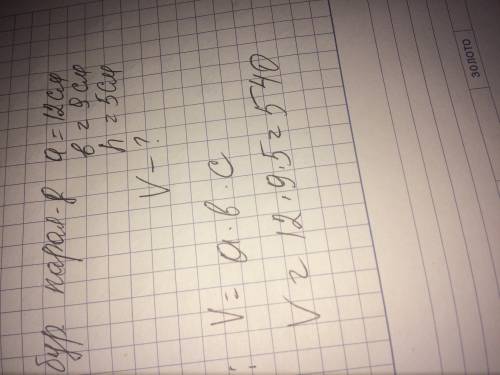 бур парал-д a = 12 см
в = 9 см
h = 5 см
V - ?
V = a · в · c
V = 12 · 9 · 5 = 540
ЗОЛОТО